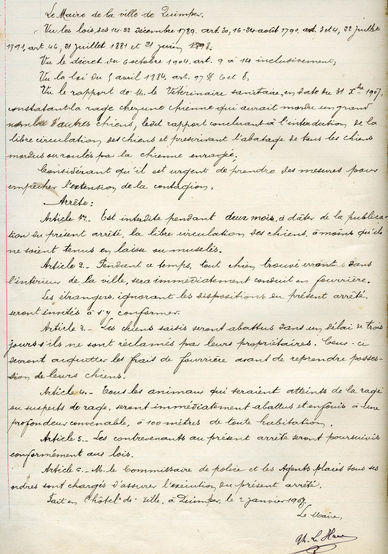 Le Maire de la ville de Quimper.
Vu les lois des 14-22 décembre 1789, art 50, 16-24 août 1790, art 3 et 4, 22 juillet
1791, art. 46, 21 juillet 1881 et 21 juin 1898.
Vu le décret du 6 octobre 1904, art. 9 à 14 inclusivement,
Vu la loi du 5 avril 1884, art. 97 § 6 et 8,
Vu le rapport de M. le Vétérinaire sanitaire, en date du 31 Xbre 1907,
constatant la rage chez une chienne qui aurait mordu un grand
nombre d'autres chiens, ledit rapport concluant à l'interdiction de la
libre circulation des chiens et prescrivant l'abatage de tous les chiens
mordus ou roulés par la chienne enragée;
Considérant qu'il est urgent de prendre des mesures pour
empêcher l'extension de la contagion.
Arrête:
Article 1er. Est interdite pendant deux mois, à dater de la publica-
tion du présent arrêté, la libre circulation des chiens, à moins qu'ils
ne soient tenus en laisse ou muselés.
Article 2. Pendant ce temps, tout chien trouvé errant dans
l'intérieur de la ville, sera immédiatement conduit en fourrière.
Les étrangers, ignorant les dispositions du présent arrêté,
seront invités à s'y conformer.
Article 3. Les chiens saisis seront abattus dans un délai de trois
jours s'ils ne sont réclamés par leurs propriétaires. Ceux-ci
devront acquitter les frais de fourrière avant de reprendre posses-
sion de leurs chiens.
Article 4. Tous les animaux qui seraient atteints de la rage
ou suspects de rage, seront immédiatement abattus et enfouis à une
profondeur convenable, à 100 mètres de toute habitation.
Article 5. Les contrevenants au présent arrêté seront poursuivis
conformément aux lois.
Article 6. M. le Commissaire de police et les Agents placés sous ses
ordres sont chargés d'assurer l'exécution du présent arrêté.
Fait en l'hôtel de ville, à Quimper, le 2 janvier
Le Maire,